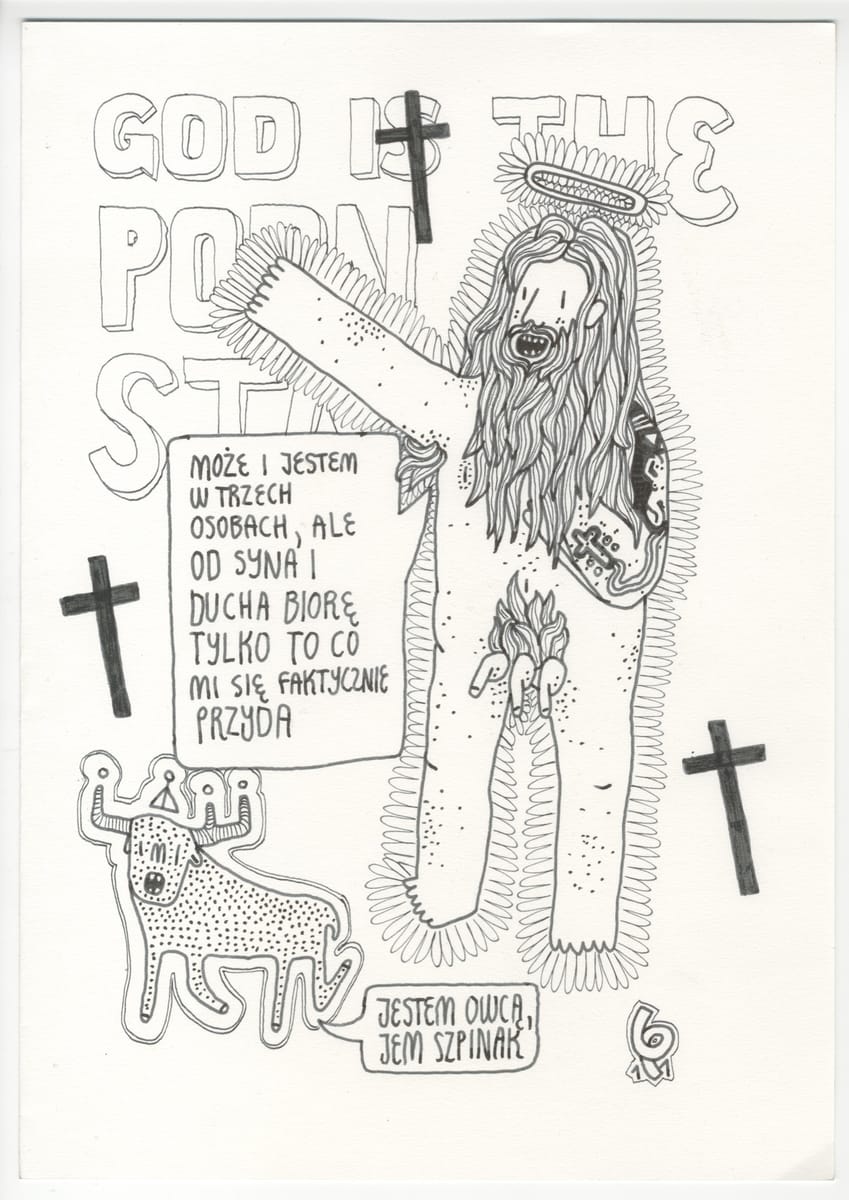 GOD IS THE
PORN
STA
MOŻE I JESTEM
W TRZECH
OSOBACH, ALE
OD SYNA I
DUCHA BIORĘ
TYLKO TO CO
MI SIĘ FAKTYCZNIE
PRZYDA
JESTEM OWCĄ,
JEM SZPINAK